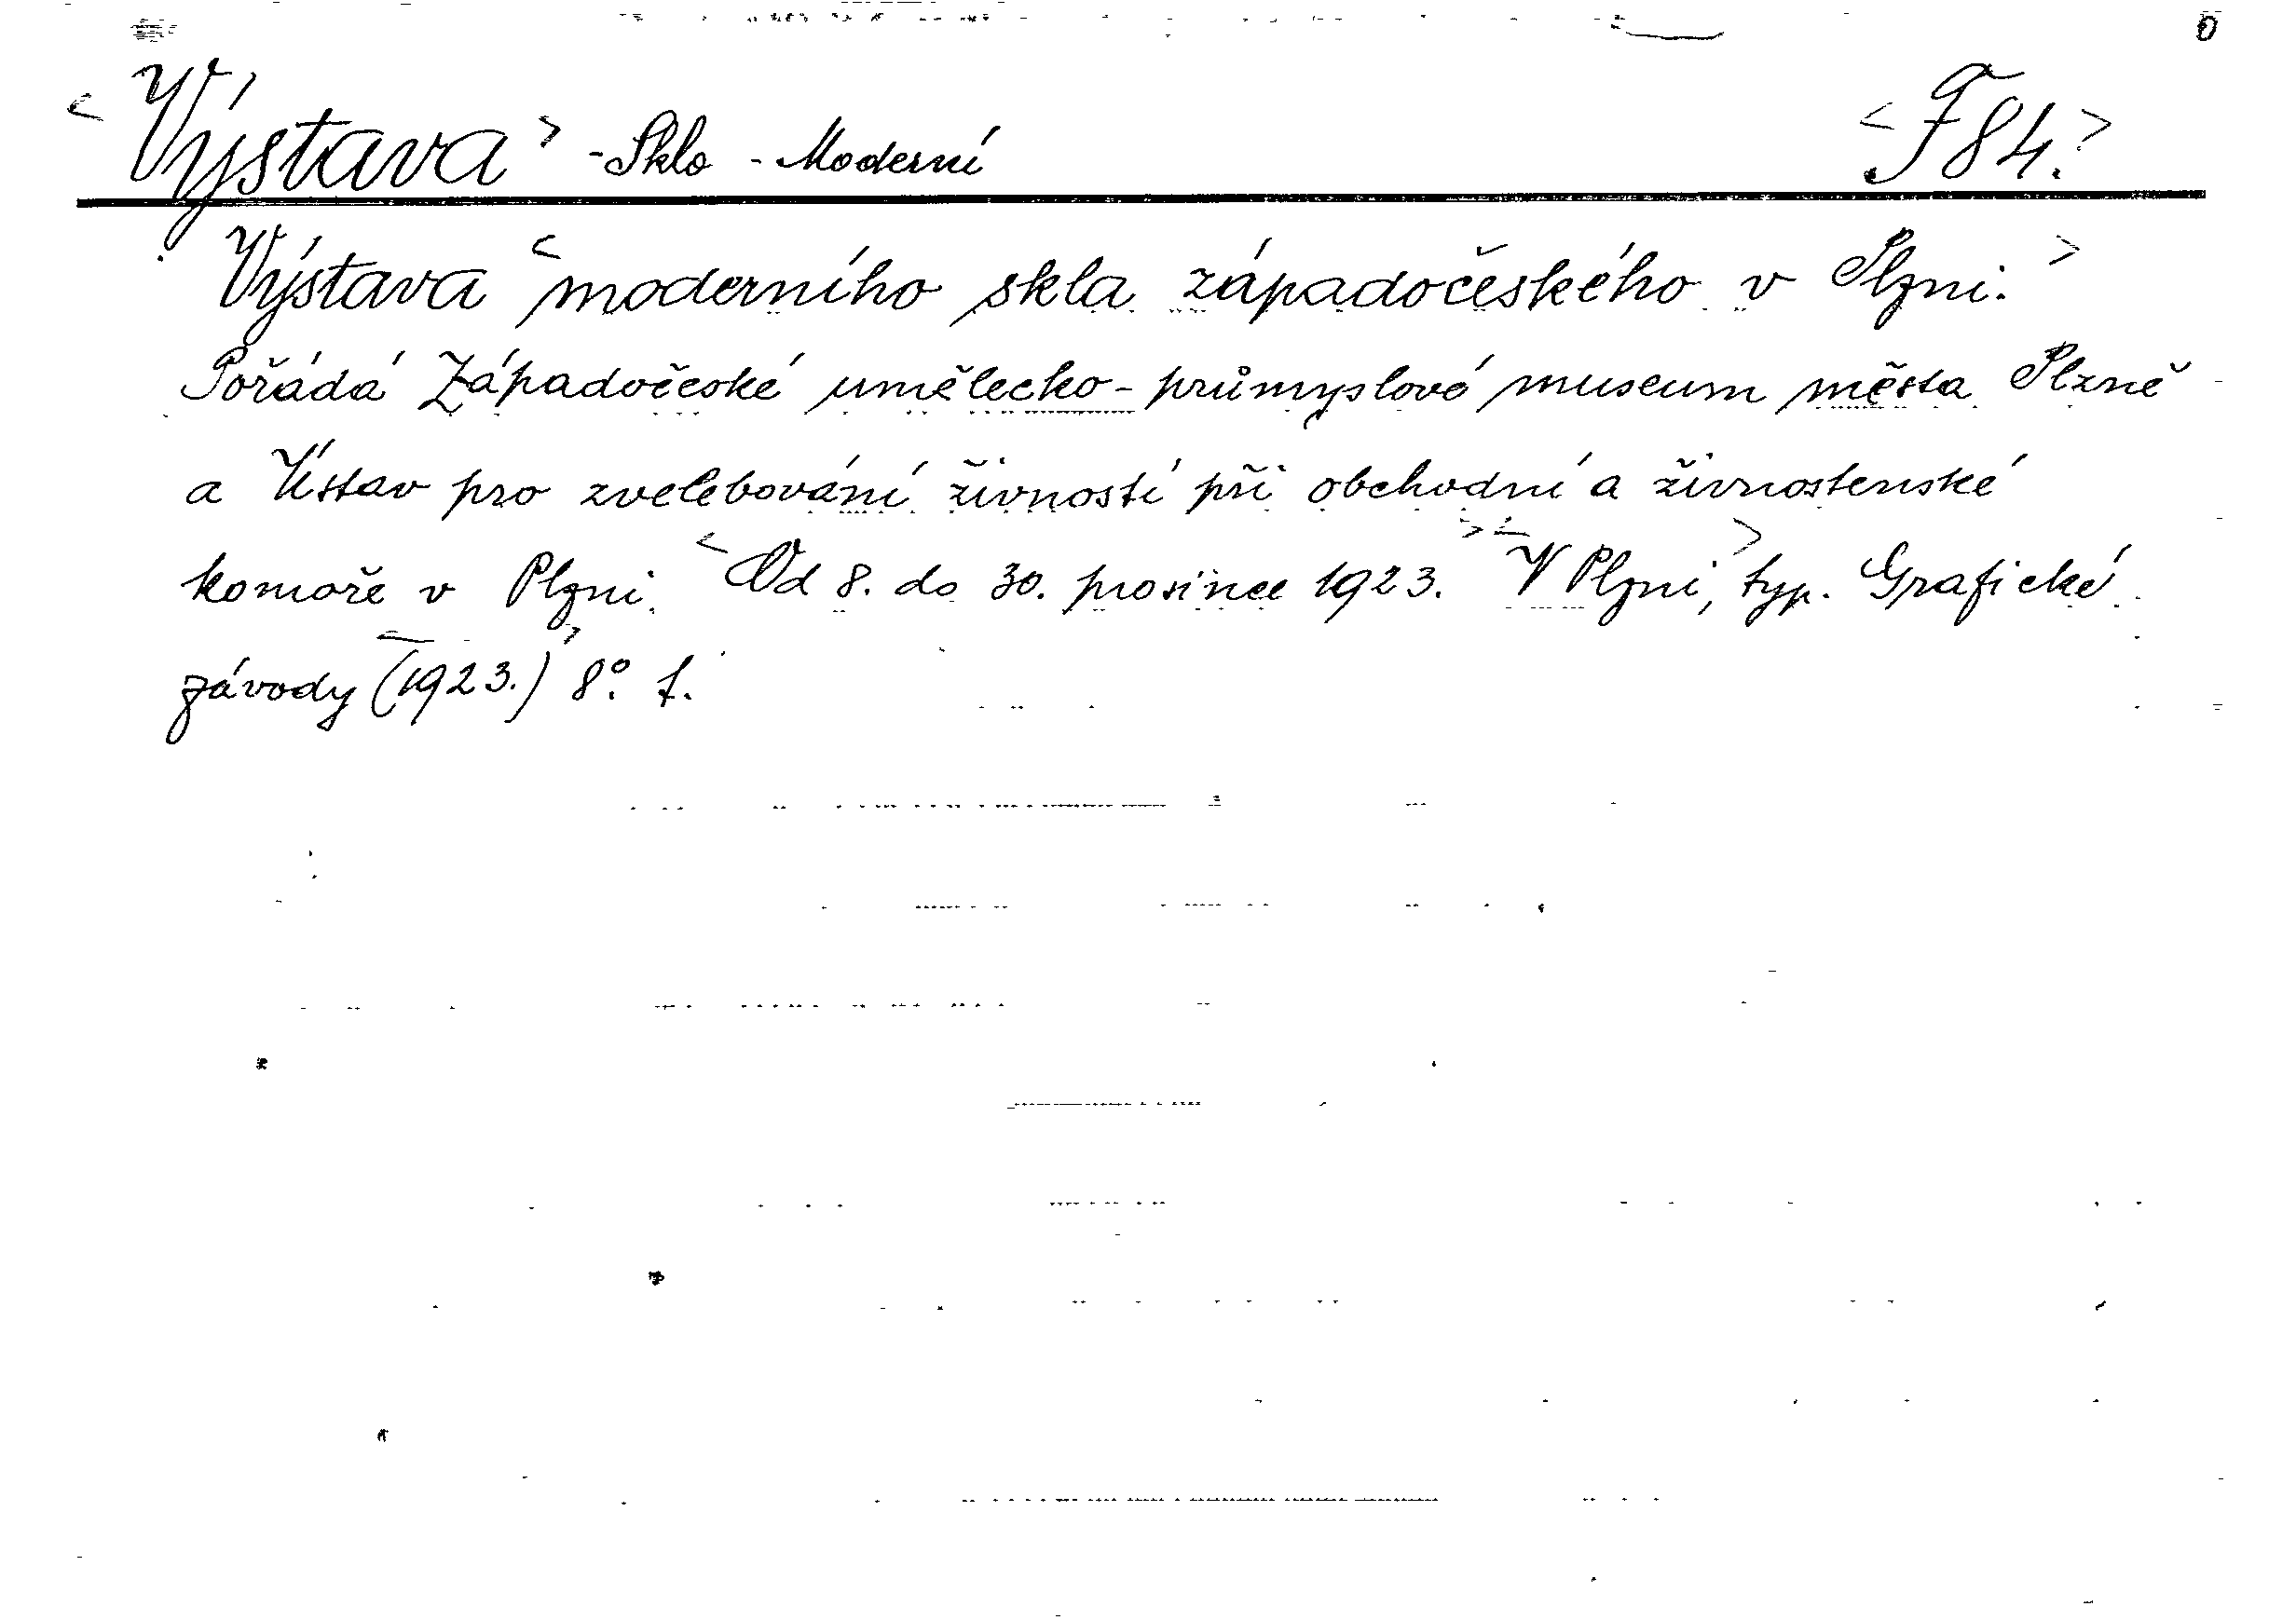 <Výstava> - Sklo - Moderní <F 84.>
Výstava <moderního skla západočeského v Plzni.>
Pořádá Západočeské umělecko-průmyslové museum města Plzně
a Ústav pro zvelebování živností při obchodní a živnostenské
komoře v Plzni. <Od 8. do 30. prosince 1923.> <V Plzni,> typ. Grafické
závody <(1923.)> 8°. f.